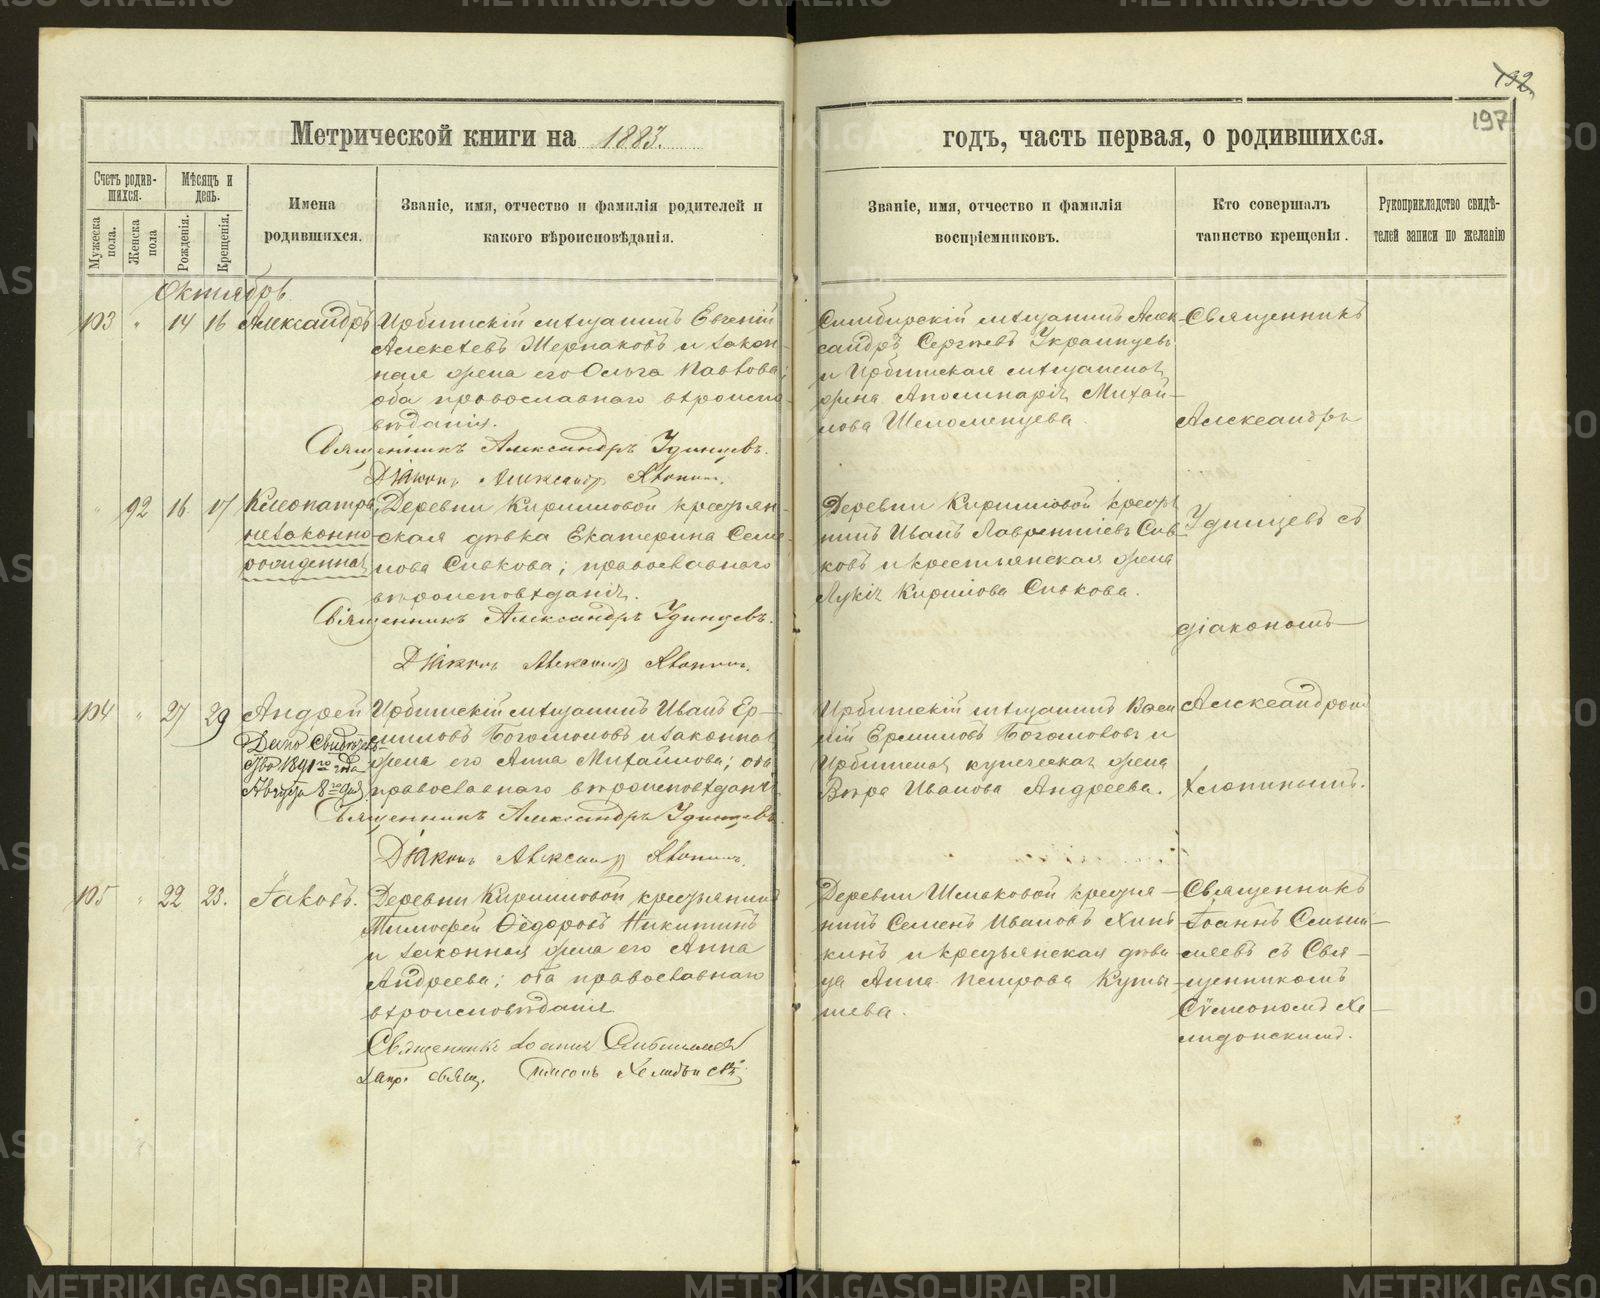 132
197
Метрической книги на 1883.
годъ, часть первая, о родившихся.
Счетъ родившихся.
Мѣсяцъ и день.
Имена родившихся.
Званіе, имя, отчество и фамилія родителей и
какого вѣроисповѣданія.
Званіе, имя, отчество и фамилія
воспріемниковъ.
Кто совершалъ
таинство крещенія.
Рукоприкладство свидѣ-
телей записи по желанію
Мужеска пола.
Женска пола
Рожденія.
Крещенія.
Октябрь
103 " 14 16 Александръ
Ирбитскій мѣщанинъ Евгеній
Алексѣевъ Мерзаковъ и закон-
ная жена его Ольга Павлова;
оба православнаго вѣроиспо-
вѣданія.
Священникъ Александръ Удинцевъ.
Діаконъ Александр Хлопин.
Симбирскій мѣщанинъ Алек-
сандръ Сергѣевъ Украинцевъ
и Ирбитская мѣщанская
жена Аполинарія Михай-
лова Шеломенцева.
Священникъ
Александръ
Удинцевъ съ
діакономъ
Александромъ
Хлопинымъ.
" 92 16 17 Клеопатра
незаконно
рожденная
Деревни Кирилловой крестьян-
ская дѣвка Екатерина Семе-
нова Сивкова; православнаго
вѣроисповѣданія.
Священникъ Александръ Удинцевъ.
Діаконъ Александр Хлопин.
Деревни Кирилловой крестья-
нинъ Иванъ Лаврентіевъ Сив-
ковъ и крестьянская жена
Лукія Кирилова Сивкова.
104 " 27 29 Андрей
Дано Свидѣтель-
ство 1891го года
Августа 8го дня.
Ирбитскій мѣщанинъ Иванъ Ер-
миловъ Богомоловъ и законная
жена его Анна Михайлова; оба
православнаго вѣроисповѣданія.
Священникъ Александръ Удинцевъ
Діаконъ Александр Хлопинъ.
Ирбитскій мѣщанинъ Васи-
лій Ермиловъ Богомоловъ и
Ирбитская купеческая жена
Вѣра Иванова Андреева.
105 " 22 23. Іаковъ.
Деревни Кирилловой крестьянинъ
Тимофей Ѳедоровъ Никитинъ
и законная жена его Анна
Андреева; оба православнаго
вѣроисповѣданія
Священникъ Іоаннъ
свящ.
Деревни Шмаковой крестья-
нинъ Семенъ Ивановъ
и крестьянская дѣви-
ца Анна Петрова
Священникъ
Іоаннъ
съ Свя-
щенникомъ
Сѵмеономъ Хе-
лидонскимъ.
METRIKI.GASO-URAL.RU